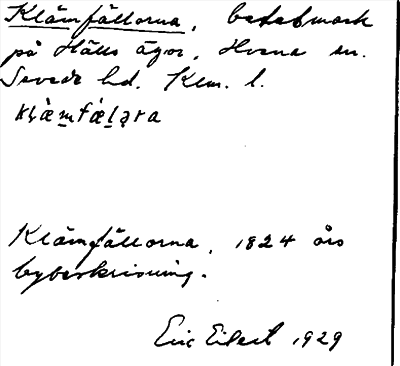 Klämfällorna, betesmark
på Hälls ägor, Hvena sn.
Sevede hd. Klm. l.
Klämfällorna, 1824 års
bybeskrivning.
Eric Eilert 1929